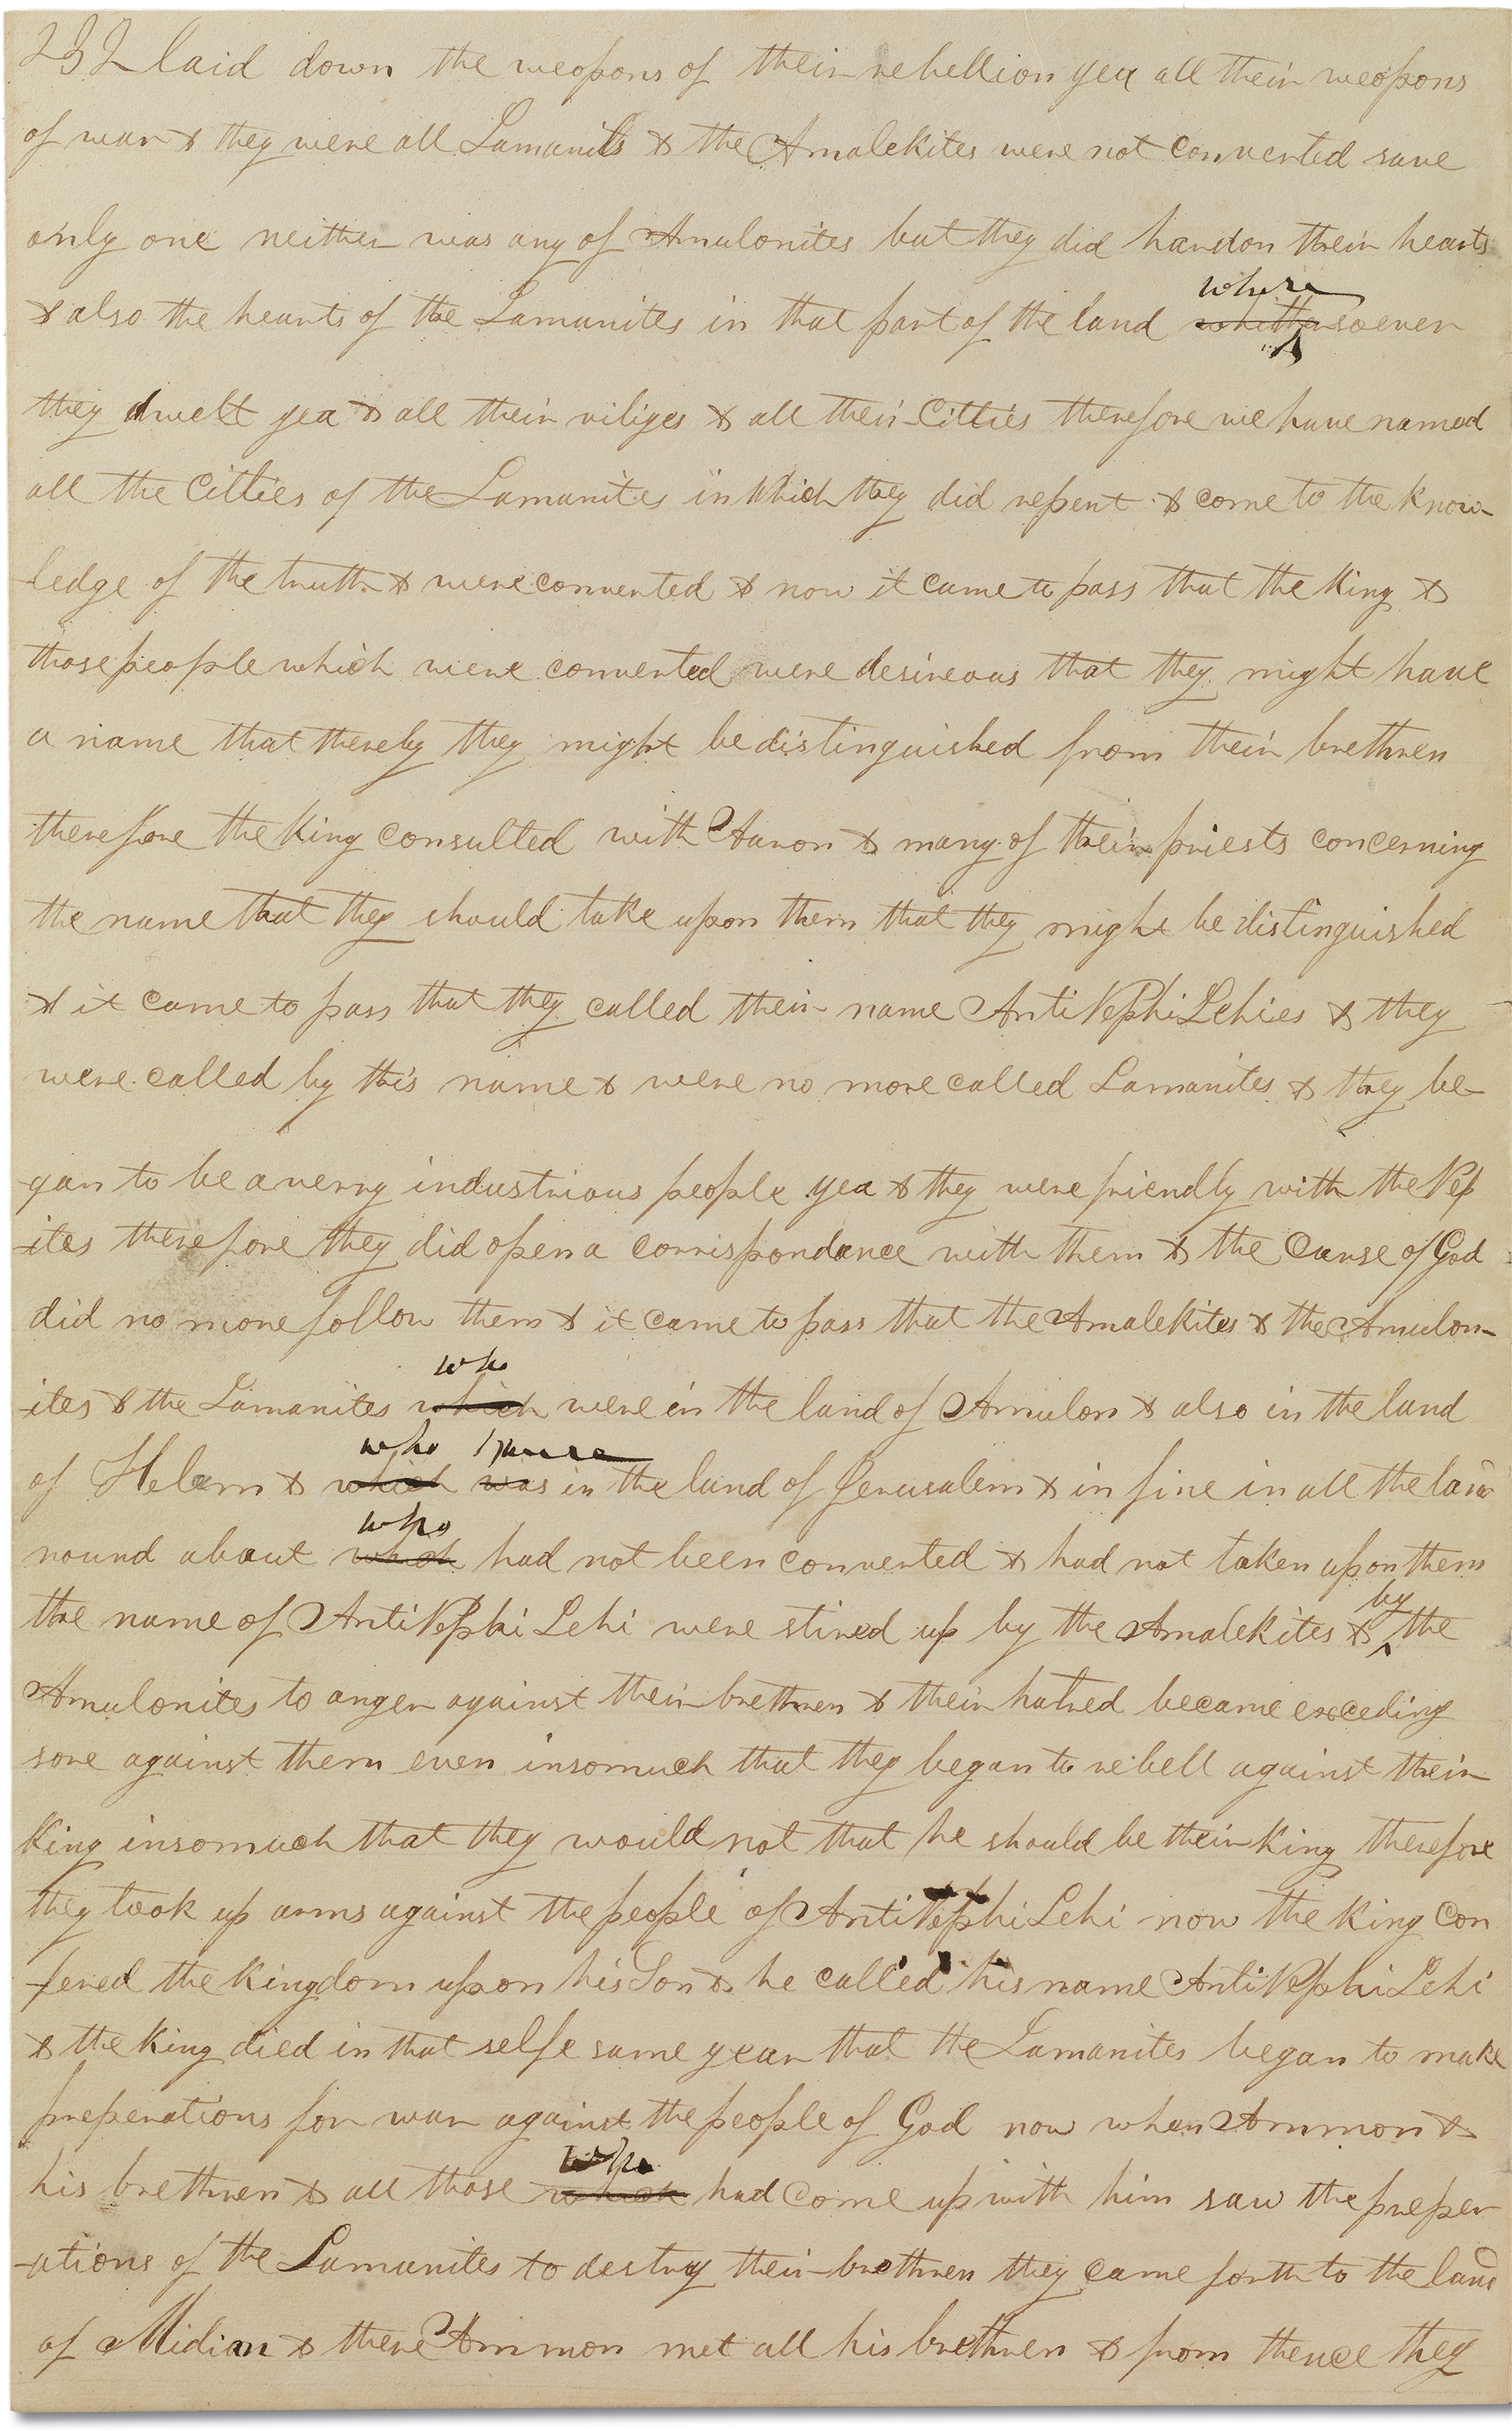 232 laid down the weopons of their rebellion yea all their weopons
of war & they were all Lamanits & the Amalekites were not converted save
only one neither was any of Amulonites but they did hardon their hearts
where
& also the hearts of the Lamanites in that part of the land whithersoever
they dwelt yea & all their viliges & all their Citties therefore we have named
all the Citties of the Lamanites in which they did repent & come to the know-
-ledge of the truth & were converted & now it came to pass that the King &
those people which were converted were desireous that they might have
a name that thereby they might be distinguished from their brethren
therefore the King consulted with Aaron & many of their priests concerning
the name that they should take upon them that they might be distinguished
& it came to pass that they called their name AntiNephiLehies & they
were called by this name & were no more called Lamanites & they be-
-gan to be a verry industrious people yea & they were friendly with the Nep
-ites therefore they did open a correspondance with them & the Curse of God
did no more follow them & it came to pass that the Amalekites & the Amulon-
who
-ites & the Lamanites which were in the land of Amulon & also in the land
who were
of Helam & which was in the land of Jerusalem & in fine in all the land
who
round about which had not been converted & had not taken upon them
by
the name of AntiNephi Lehi were stired up by the Amalekites & the
Amulonites to anger against their brethren & their hatred became exceding
sore against them even insomuch that they began to rebell against their
King insomuch that they would not that he should be their King therefore
they took up arms against the people of AntiNephiLehi now the King con
-fered the Kingdom upon his Son & he called his name AntiNephiLehi
& the King died in that selfe same year that the Lamanites began to make
preperations for war against the people of God now when Ammon &
who
his brethren & all those which had come up with him saw the preper
-ations of the Lamanites to destroy their brethren they came forth to the land
of Midian & there Ammon met all his brethren & from thence they